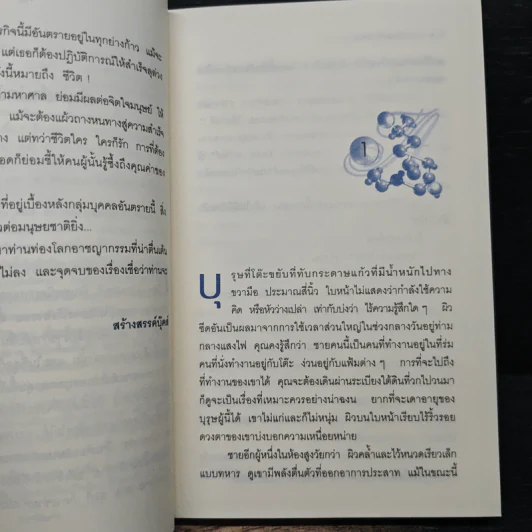 รกิจนี้มีอันตรายอยู่ในทุกย่างก้าว แม้จะ
แต่เธอก็ต้องปฏิบัติการณ์ให้สำเร็จลุล่วง
งนี้หมายถึง ชีวิต !
ามหาศาล ย่อมมีผลต่อจิตใจมนุษย์ ให้
แม้จะต้องแผ้วถางหนทางสู่ความสำเร็จ
าง แต่ทว่าชีวิตใคร ใครก็รัก การที่ต้อง
อดก็ย่อมชี้ให้คนผู้นั้นรู้ซึ้งถึงคุณค่าของ
ที่อยู่เบื้องหลังกลุ่มบุคคลอันตรายนี้ ยิ่ง
วต่อมนุษยชาติยิ่ง...
าท่านท่องโลกอาชญากรรมที่น่าตื่นเต้น
ไม่ลง และจุดจบของเรื่องเชื่อว่าท่านจะ
สร้างสรรค์บุ๊คส์
1
บุรุษที่โต๊ะขยับที่ทับกระดาษแก้วที่มีน้ำหนักไปทาง
ขวามือ ประมาณสี่นิ้ว ใบหน้าไม่แสดงว่ากำลังใช้ความ
คิด หรือหัวว่างเปล่า เท่ากับบ่งว่า ไร้ความรู้สึกใด ๆ ผิว
ซีดอันเป็นผลมาจากการใช้เวลาส่วนใหญ่ในช่วงกลางวันอยู่ท่าม
กลางแสงไฟ คุณคงรู้สึกว่า ชายคนนี้เป็นคนที่ทำงานอยู่ในที่ร่ม
คนที่นั่งทำงานอยู่กับโต๊ะ ง่วนอยู่กับแฟ้มต่าง ๆ การที่จะไปถึง
ที่ทำงานของเขาได้ คุณจะต้องเดินผ่านระเบียงใต้ดินที่วกไปวนมา
ก็ดูจะเป็นเรื่องที่เหมาะควรอย่างน่าฉงน ยากที่จะเดาอายุของ
บุรุษผู้นี้ได้ เขาไม่แก่และก็ไม่หนุ่ม ผิวบนใบหน้าเรียบไร้ริ้วรอย
ดวงตาของเขาบ่งบอกความเหนื่อยหน่าย
ชายอีกผู้หนึ่งในห้องสูงวัยกว่า ผิวคล้ำและไว้หนวดเรียวเล็ก
แบบทหาร ดูเขามีพลังตื่นตัวที่ออกอาการประสาท แม้ในขณะนี้